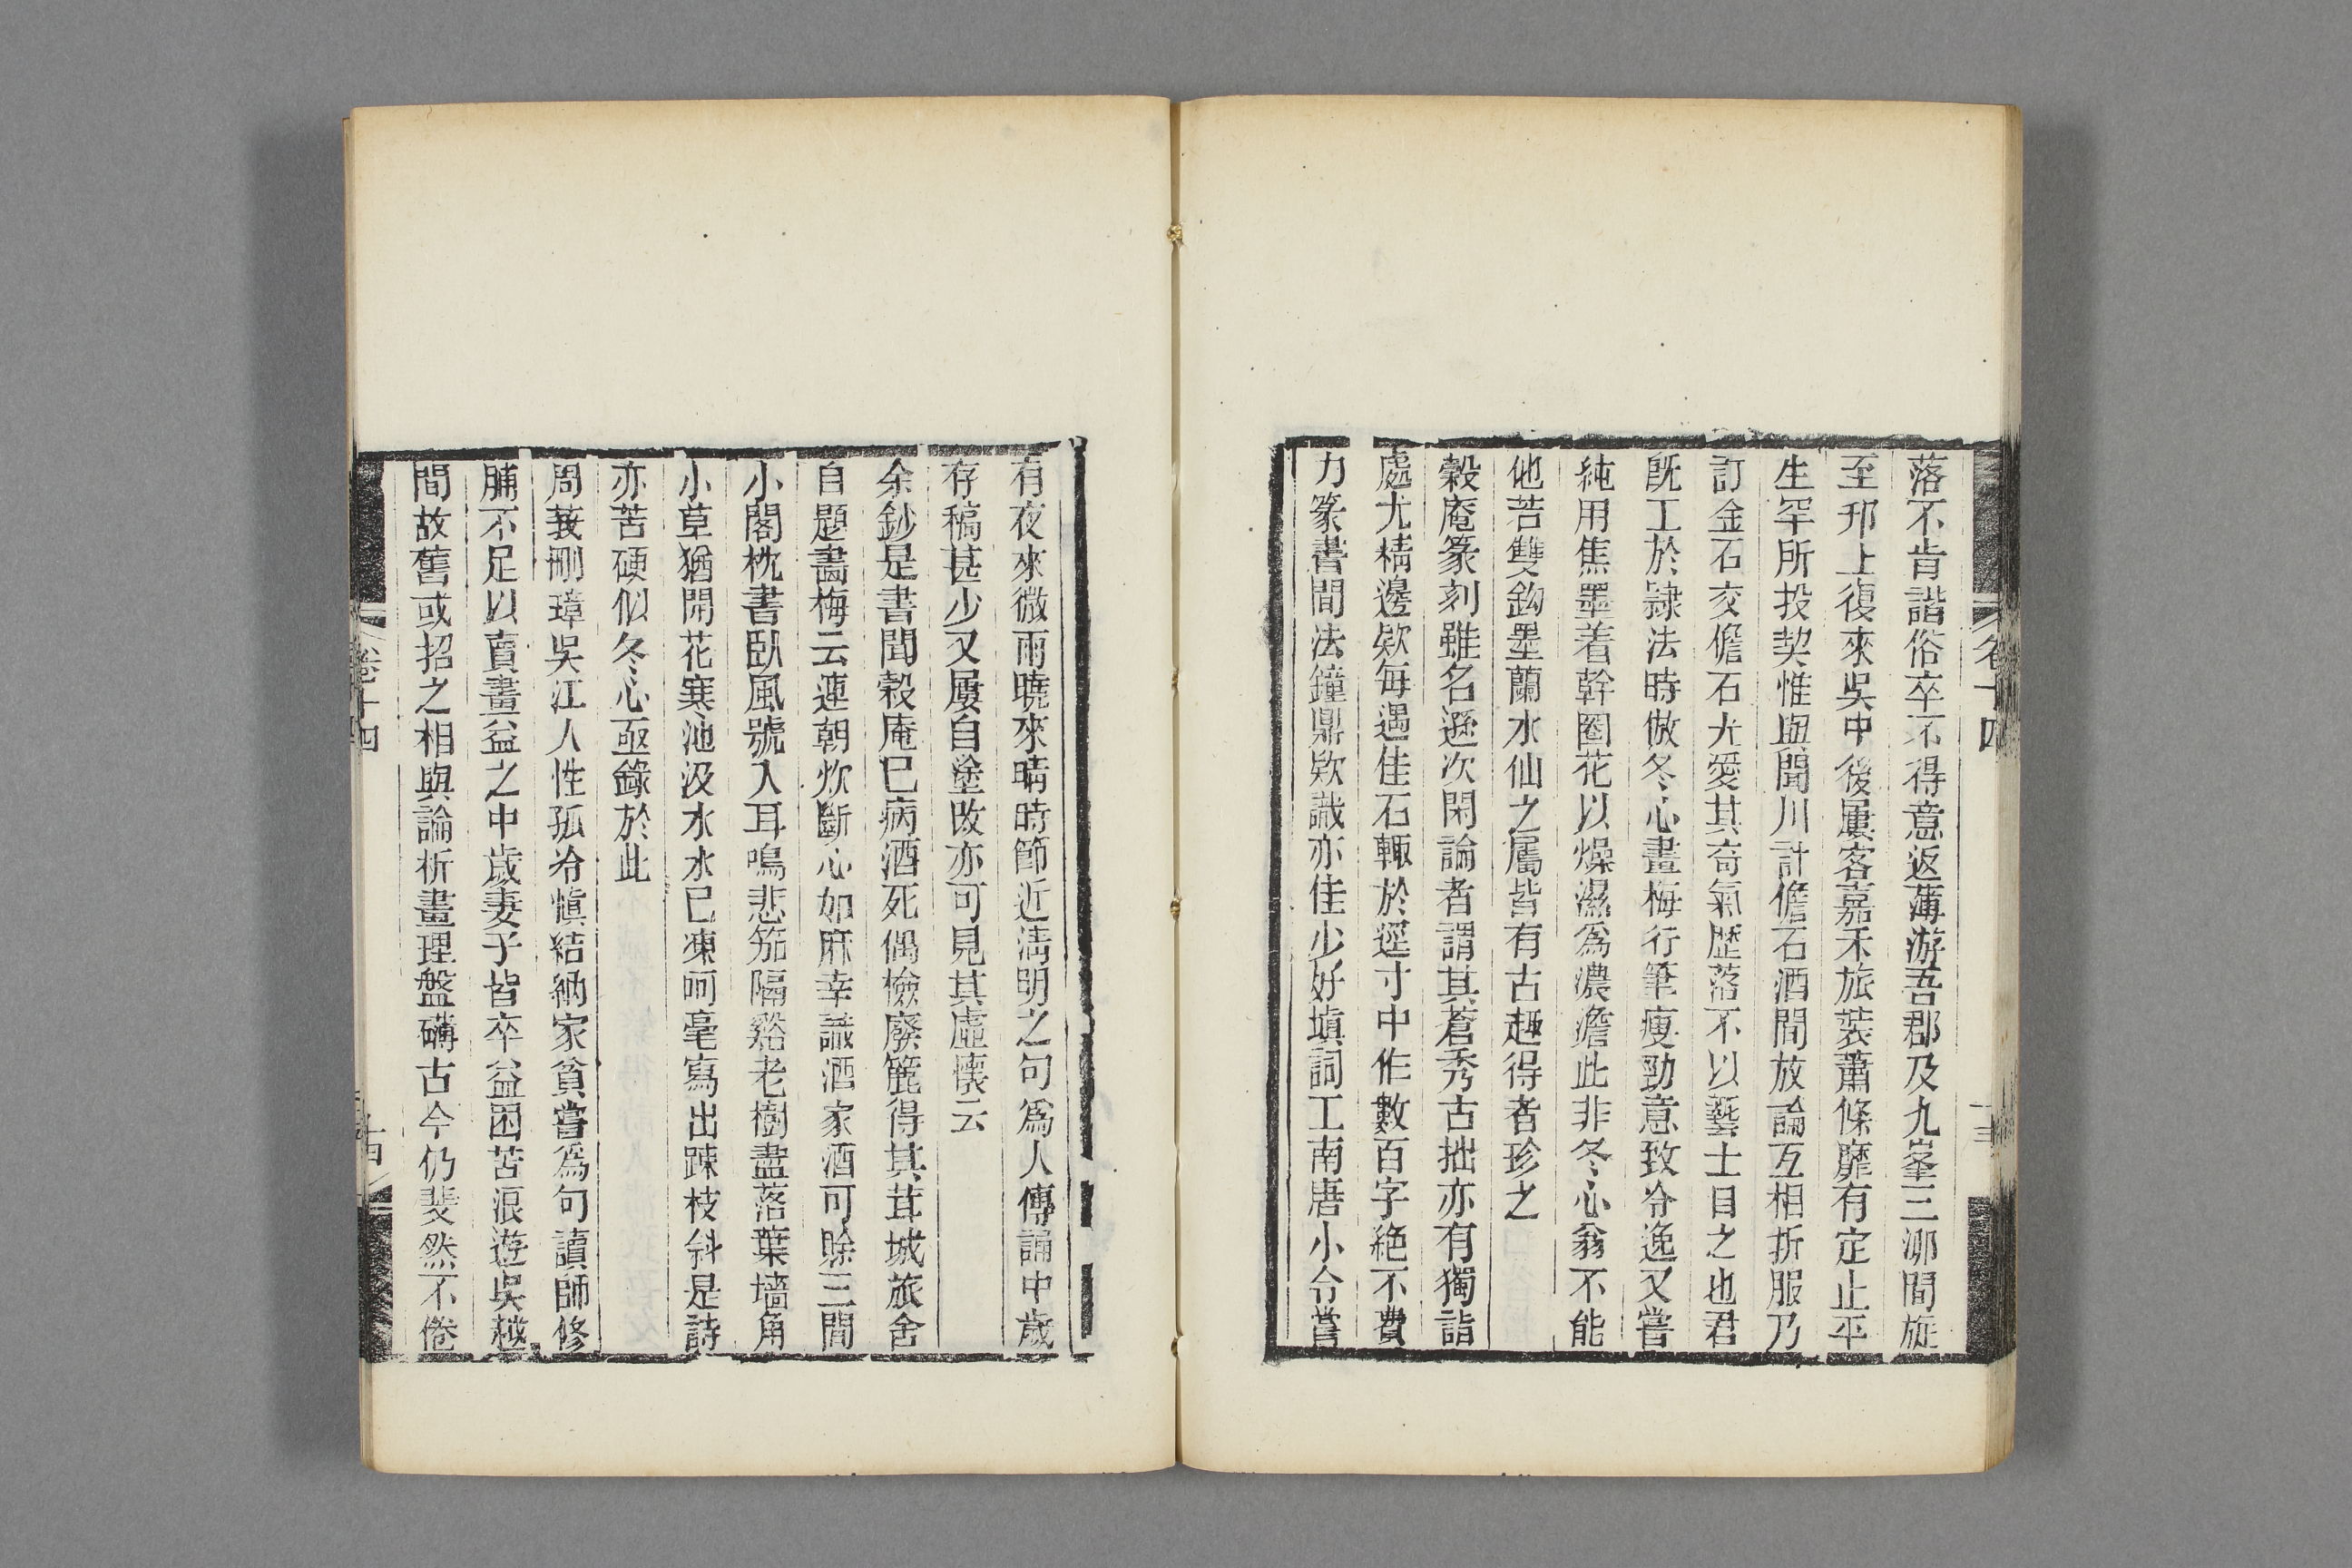 落不肯諧俗卒不得意返薄游吾郡及九峯三泖間旋
至邗上復來吳中後屢客嘉禾旅裝蕭條靡有定止平
生罕所投契惟與聞川計儋石酒間放論互相折服乃
訂金石交儋石尤愛其奇氣歷落不以藝士目之也君
旣工於隷法時倣冬心畫梅行筆瘦勁意致冷逸又嘗
純用焦墨着幹圈花以燥濕爲濃澹此非冬心翁不能
他若雙鈎墨蘭水仙之屬皆有古趣得者珍之
穀庵篆刻雖名遜次閑論者謂其蒼秀古拙亦有獨詣
處尤精邊欵每遇佳石輒於逕寸中作數百字絕不費
力篆書間法鐘鼎欵識亦佳少好塡詞工南唐小令嘗
卷十四
有夜來微雨曉來晴時節近淸明之句爲人傳誦中歲
存稿甚少又屢自塗改亦可見其虛懷云
余鈔是書聞穀庵已病酒死偶檢廢簏得其茸城旅舍
自題畵梅云連朝炊斷心如麻幸識酒家酒可賒三間
小閣枕書臥風號入耳鳴悲笳隔谿老樹盡落葉墻角
小草猶開花寒池汲水水已凍呵毫寫出踈枝斜是詩
亦苦硬似冬心亟錄於此
周菝刪璋吳江人性孤冷愼結納家貧嘗爲句讀師修
脯不足以賣畫益之中歲妻子皆卒益困苦浪遊吳越
間故舊或招之相與論析畫理盤礴古今仍斐然不倦
卷十四